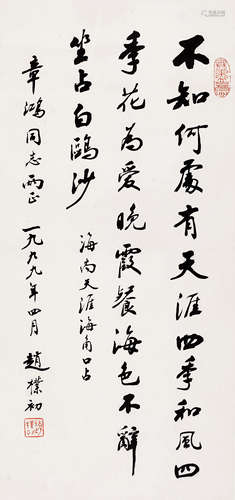 不知何處有天涯四季和風四
季花為愛晚霞餐海色不辭
坐占白鷗沙
海南天涯海角口占
章鴻同志両正
一九九九年四月
趙樸初